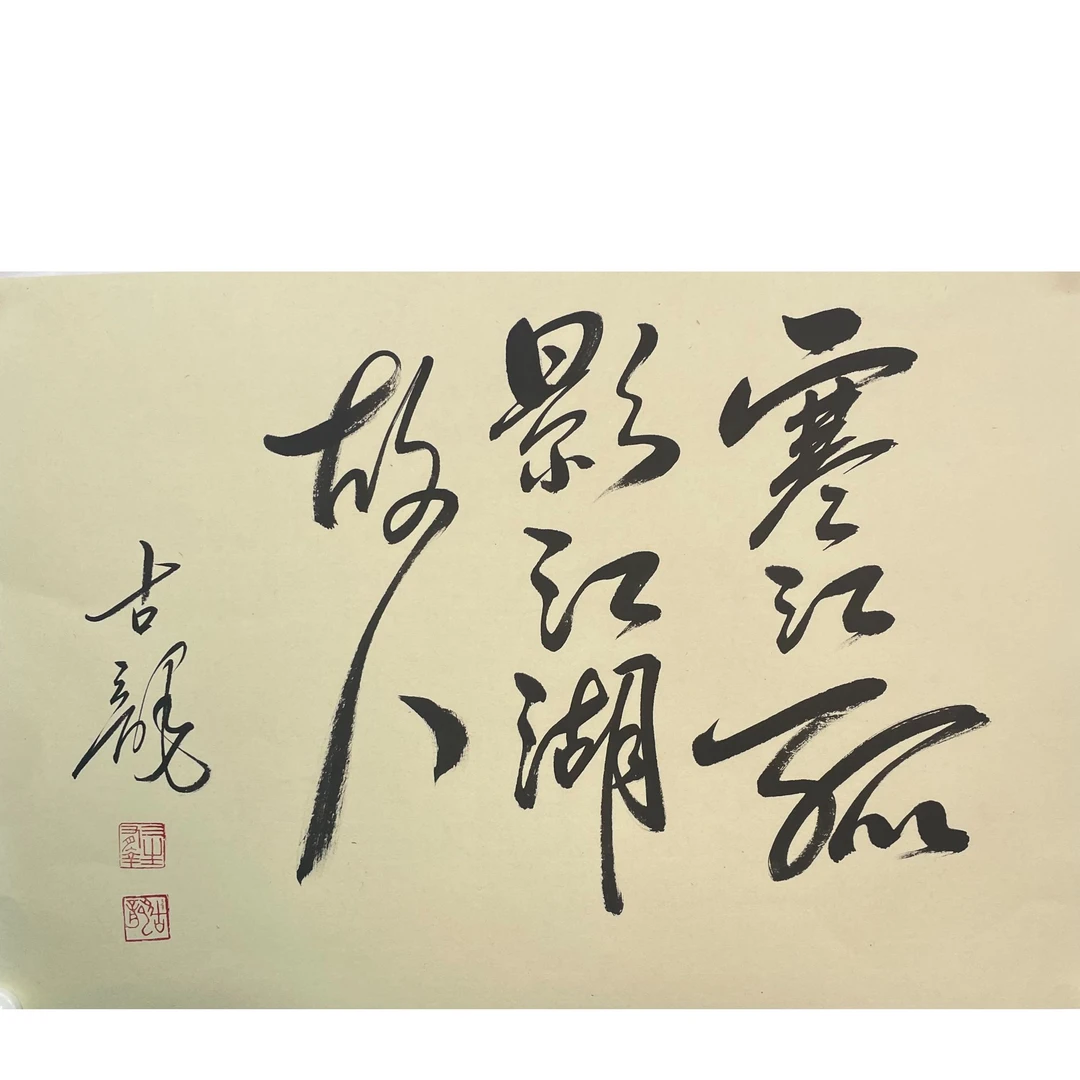 寒江孤
影江湖
故人
古龍
古龍